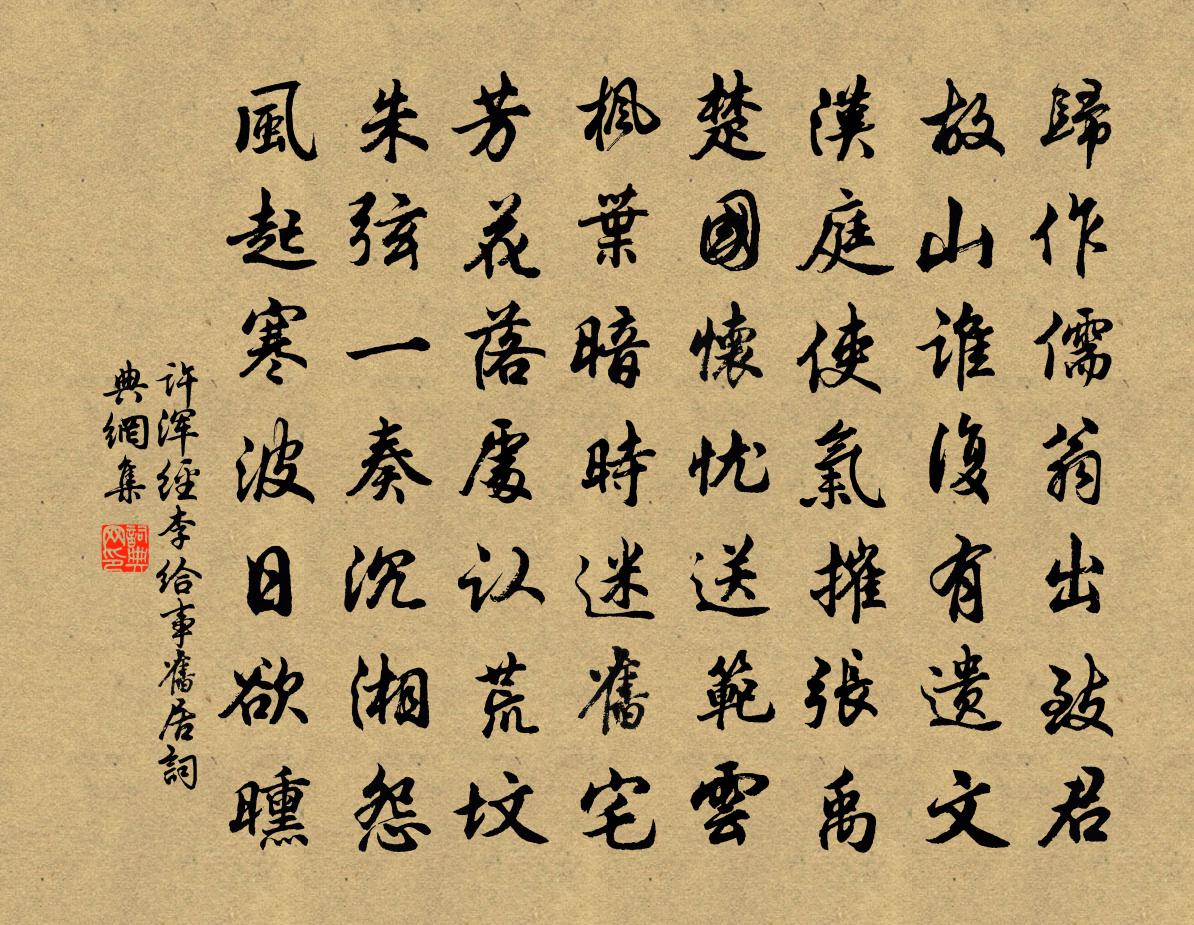 歸作儒翁出致君
故山誰復有遺文
漢庭使氣摧張禹
楚國懷忧送範雲
楓葉暗時迷舊宅
芳花落處认荒坟
朱弦一奏沉湘怨
風起寒波日欲曛
许渾經李给事舊居詞
典網集
詞典网印